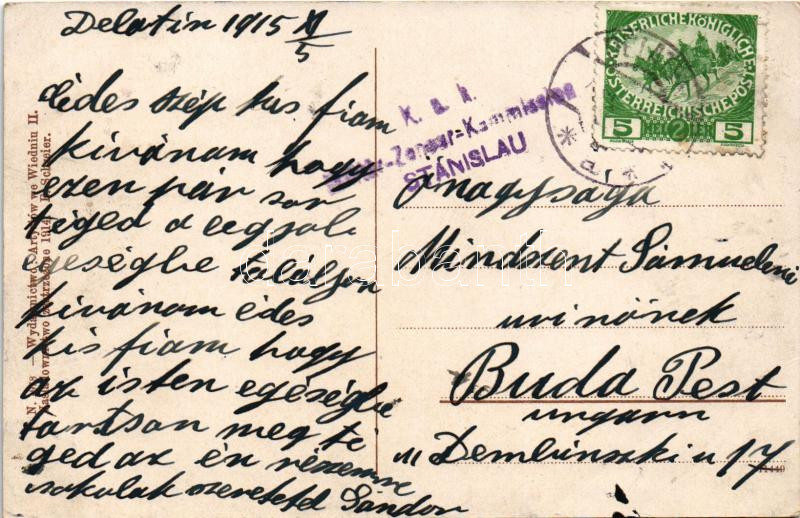 Delatin 1915 XI/5
Édes szép kis fiam
kivánom hogy
ezen pár sor
téged a legjob
egeségbe találjon
kivánom édes
kis fiam hogy
az isten egéségbe
tartson meg té
ged az én részemre
csokolak szeretetel Sándor
K. u. k.
-Zensur-Kommission
STANISLAU
KAISERLICHE KÖNIGLICHE
ÖSTERREICHISCHE POST
5 HELLER 2 5
Őnagysága
Mindszent Sámuelné
urinőnek
Buda Pest
ungarn
VII Dembinszki u 17
darabanth
N. – Wydawnictwo Artystów we Wiedniu II.
1914